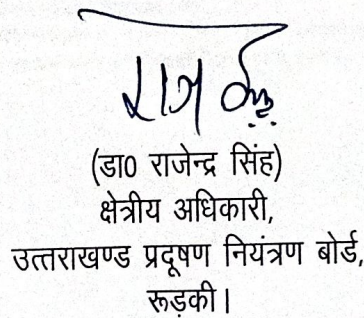 (डा0 राजेन्द्र सिंह)
क्षेत्रीय अधिकारी,
उत्तराखण्ड प्रदूषण नियंत्रण बोर्ड,
रूड़की।